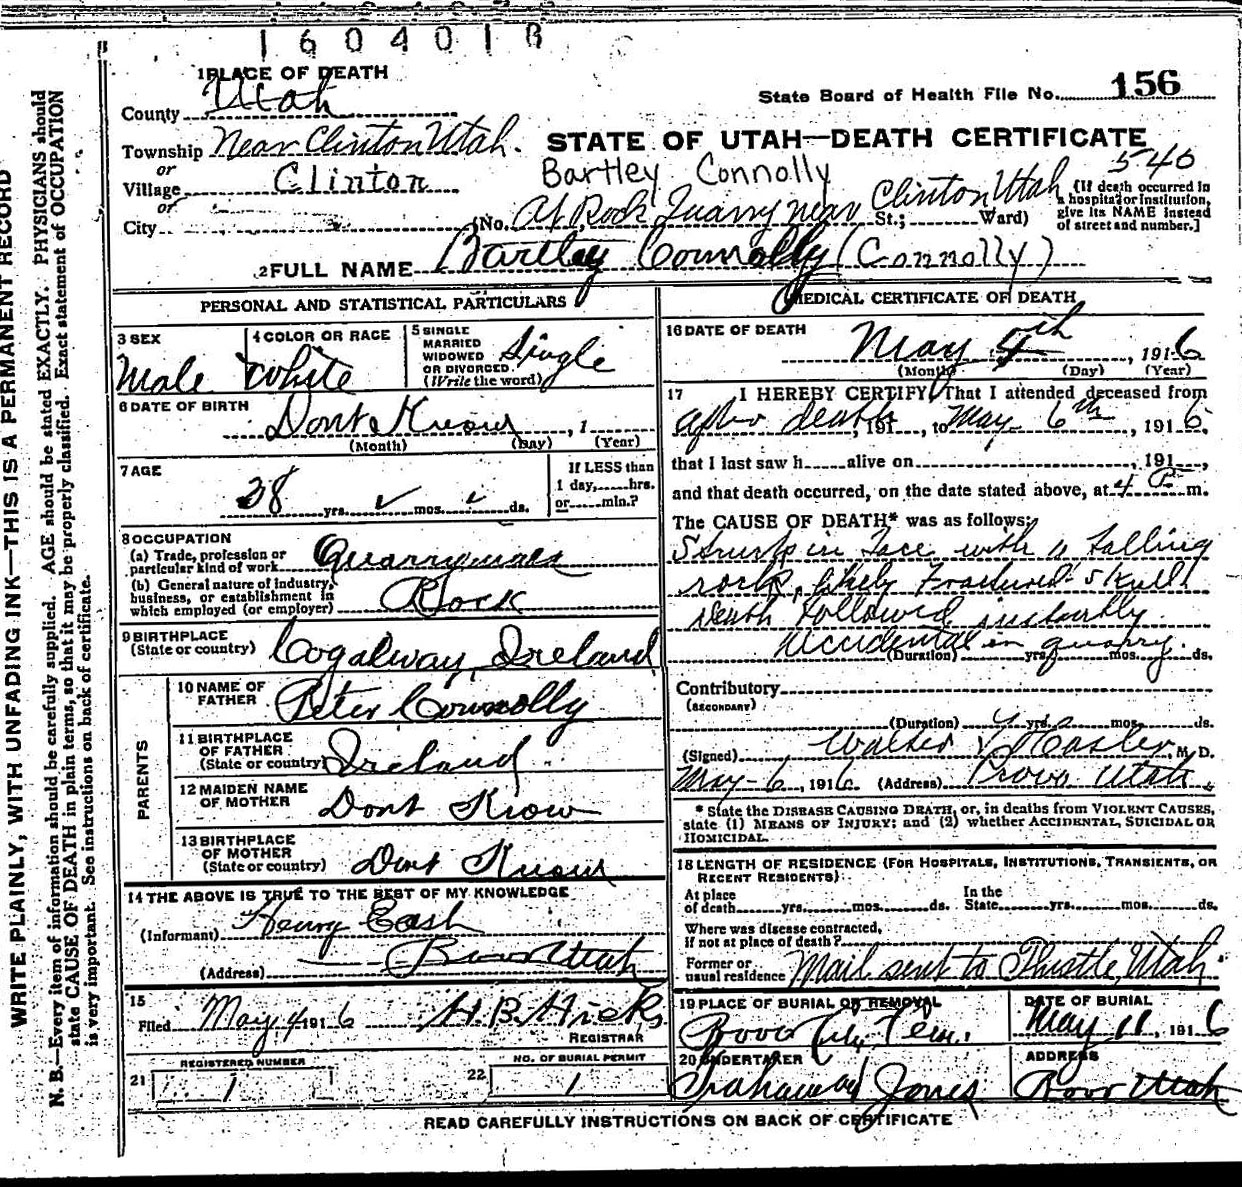 1604018
1 PLACE OF DEATH
County Utah
State Board of Health File No. 156
Township Near Clinton Utah.
STATE OF UTAH—DEATH CERTIFICATE
or
Village Clinton
Bartley Connolly 540
or
City (No. At Rock Quarry near Clinton Utah St.; Ward)
[If death occurred in
a hospital or institution,
give its NAME instead
of street and number.]
2 FULL NAME Bartley Connolly (Connolly)
PERSONAL AND STATISTICAL PARTICULARS
3 SEX
Male
4 COLOR OR RACE
White
5 SINGLE
MARRIED
WIDOWED
OR DIVORCED
(Write the word)
Single
6 DATE OF BIRTH
Dont Know, 1
(Month) (Day) (Year)
7 AGE
38 yrs. mos. ds.
If LESS than
1 day, hrs.
or min.?
8 OCCUPATION
(a) Trade, profession or
particular kind of work Quarryman
(b) General nature of industry,
business, or establishment in
which employed (or employer) Rock
9 BIRTHPLACE
(State or country) Co Galway, Ireland
PARENTS
10 NAME OF
FATHER Peter Connolly
11 BIRTHPLACE
OF FATHER
(State or country) Ireland
12 MAIDEN NAME
OF MOTHER Dont Know
13 BIRTHPLACE
OF MOTHER
(State or country) Dont Know
14 THE ABOVE IS TRUE TO THE BEST OF MY KNOWLEDGE
(Informant) Henry
(Address) Provo Utah
15
Filed May 4 1916 H.B. Hicks
REGISTRAR
REGISTERED NUMBER
21 1
NO. OF BURIAL PERMIT
22 1
MEDICAL CERTIFICATE OF DEATH
16 DATE OF DEATH
May 4th, 1916
(Month) (Day) (Year)
17 I HEREBY CERTIFY, That I attended deceased from
after death, 191 , to May 6th, 1916,
that I last saw h alive on , 191 ,
and that death occurred, on the date stated above, at 4 P m.
The CAUSE OF DEATH* was as follows:
Struck in face with a falling
rock, likely Fractured Skull
Death followed instantly
Accidental in quarry.
(Duration) yrs. mos. ds.
Contributory
(SECONDARY)
(Duration) yrs. mos. ds.
(Signed) Walter Hasler, M.D.
May-6, 1916 (Address) Provo Utah.
* State the DISEASE CAUSING DEATH, or, in deaths from VIOLENT CAUSES,
state (1) MEANS OF INJURY; and (2) whether ACCIDENTAL, SUICIDAL OR
HOMICIDAL.
18 LENGTH OF RESIDENCE (FOR HOSPITALS, INSTITUTIONS, TRANSIENTS, OR
RECENT RESIDENTS)
At place
of death yrs. mos. ds.
In the
State yrs. mos. ds.
Where was disease contracted,
if not at place of death?
Former or
usual residence Mail sent to Thistle, Utah.
19 PLACE OF BURIAL OR REMOVAL
Provo City Cem.
DATE OF BURIAL
May 11, 1916
20 UNDERTAKER
Jones
ADDRESS
Provo Utah
READ CAREFULLY INSTRUCTIONS ON BACK OF CERTIFICATE
WRITE PLAINLY, WITH UNFADING INK—THIS IS A PERMANENT RECORD
N. B.—Every item of information should be carefully supplied. AGE should be stated EXACTLY. PHYSICIANS should
state CAUSE OF DEATH in plain terms, so that it may be properly classified. Exact statement of OCCUPATION
is very important. See instructions on back of certificate.